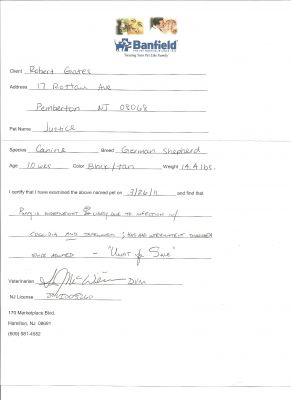 Banfield
THE PET HOSPITAL
Treating Your Pet Like Family
Client Robert Gates
Address 17 Rottau Ave
Pemberton NJ 08068
Pet Name Justice
Species Canine Breed German Shepherd
Age 10 wks Color Black/tan Weight 14.4 lbs.
I certify that I have examined the above named pet on 3/26/11 and find that
Puppy is underweight likely due to infection w/
coccidia and tapeworms ; has had intermittent diarrhea
since adopted - "Unfit for Sale"
Veterinarian DVM
NJ License
170 Marketplace Blvd.
Hamilton, NJ 08691
(609) 581-4552